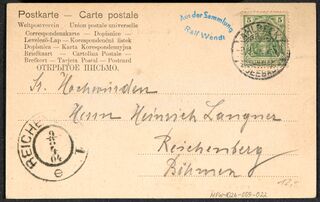 Postkarte - Carte postale
Weltpostverein - Union postale universelle
Correspondenzkarte - Dopisnice -
Levelező-Lap - Korespondenční lístek
Dopisnica - Karta Korespondencyjna
Briefkaart - Cartolina Postale -
Brefkort - Tarjeta Postal - Postcard
ОТКРЫТОЕ ПИСЬМО.
Aus der Sammlung
Ralf Wendt
5 5
REICHE
04
Sr. Hochwürden
Herrn Heinrich Langner
Reichenberg
Böhmen
12,-